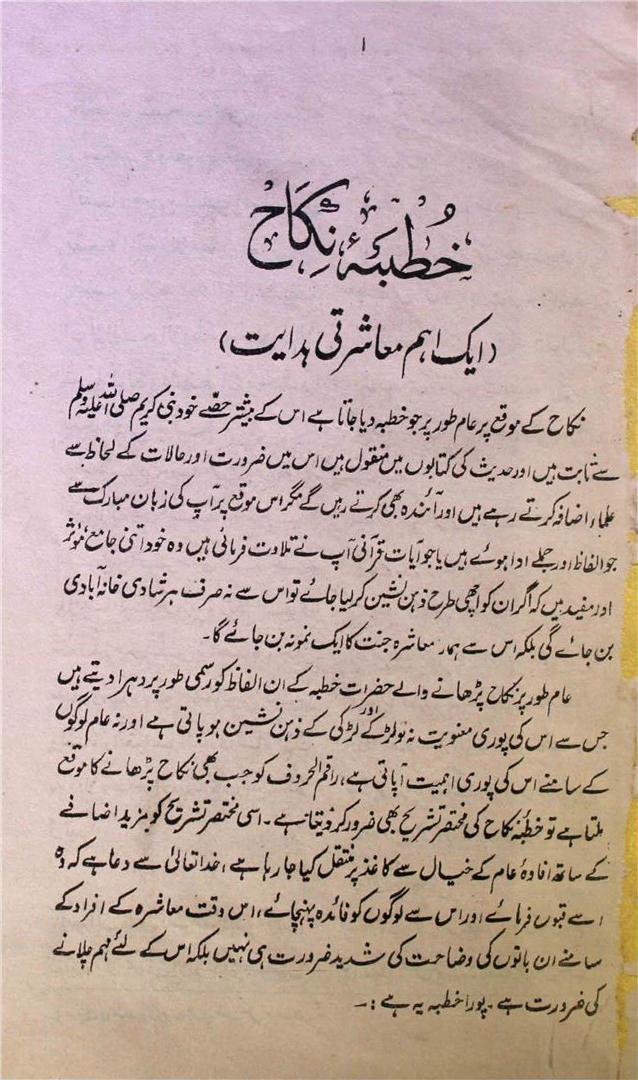 ۱
خُطبَۂ نِکَاح
(ایک اہم معاشرتی ہدایت)
نکاح کے موقع پر عام طور پر جو خطبہ دیا جاتا ہے اس کے بیشتر حصّے خود نبی کریم صلی اللہ علیہ وسلم
سے ثابت ہیں اور حدیث کی کتابوں میں منقول ہیں اس میں ضرورت اور حالات کے لحاظ سے
علماء اضافہ کرتے رہے ہیں اور آئندہ بھی کرتے رہیں گے مگر اس موقع پر آپ کی زبان مبارک سے
جو الفاظ اور جملے ادا ہوئے ہیں یا جو آیات قرآنی آپ نے تلاوت فرمائی ہیں وہ خود اتنی جامع، مؤثر
اور مفید ہیں کہ اگر ان کو اچھی طرح ذہن نشین کر لیا جائے تو اس سے نہ صرف ہر شادی خانہ آبادی
بن جائے گی بلکہ اس سے ہمار معاشرہ جنت کا ایک نمونہ بن جائے گا۔
عام طور پر نکاح پڑھانے والے حضرات خطبہ کے ان الفاظ کو رسمی طور پر دہرا دیتے ہیں
جس سے اس کی پوری معنویت نہ تو لڑکے اور لڑکی کے ذہن نشین ہو پاتی ہے اور نہ عام لوگوں
کے سامنے اس کی پوری اہمیت آپاتی ہے، راقم الحروف کو جب بھی نکاح پڑھانے کا موقع
ملتا ہے تو خطبۂ نکاح کی مختصر تشریح بھی ضرور کر دیتا ہے۔ اسی مختصر تشریح کو مزید اضافے
کے ساتھ افادۂ عام کے خیال سے کاغذ پر منتقل کیا جا رہا ہے، خدا تعالیٰ سے دعا ہے کہ وہ
اسے قبول فرمائے اور اس سے لوگوں کو فائدہ پہنچائے، اس وقت معاشرہ کے افراد کے
سامنے ان باتوں کی وضاحت کی شدید ضرورت ہی نہیں بلکہ اس کے لئے مہم چلانے
کی ضرورت ہے۔ پورا خطبہ یہ ہے :۔